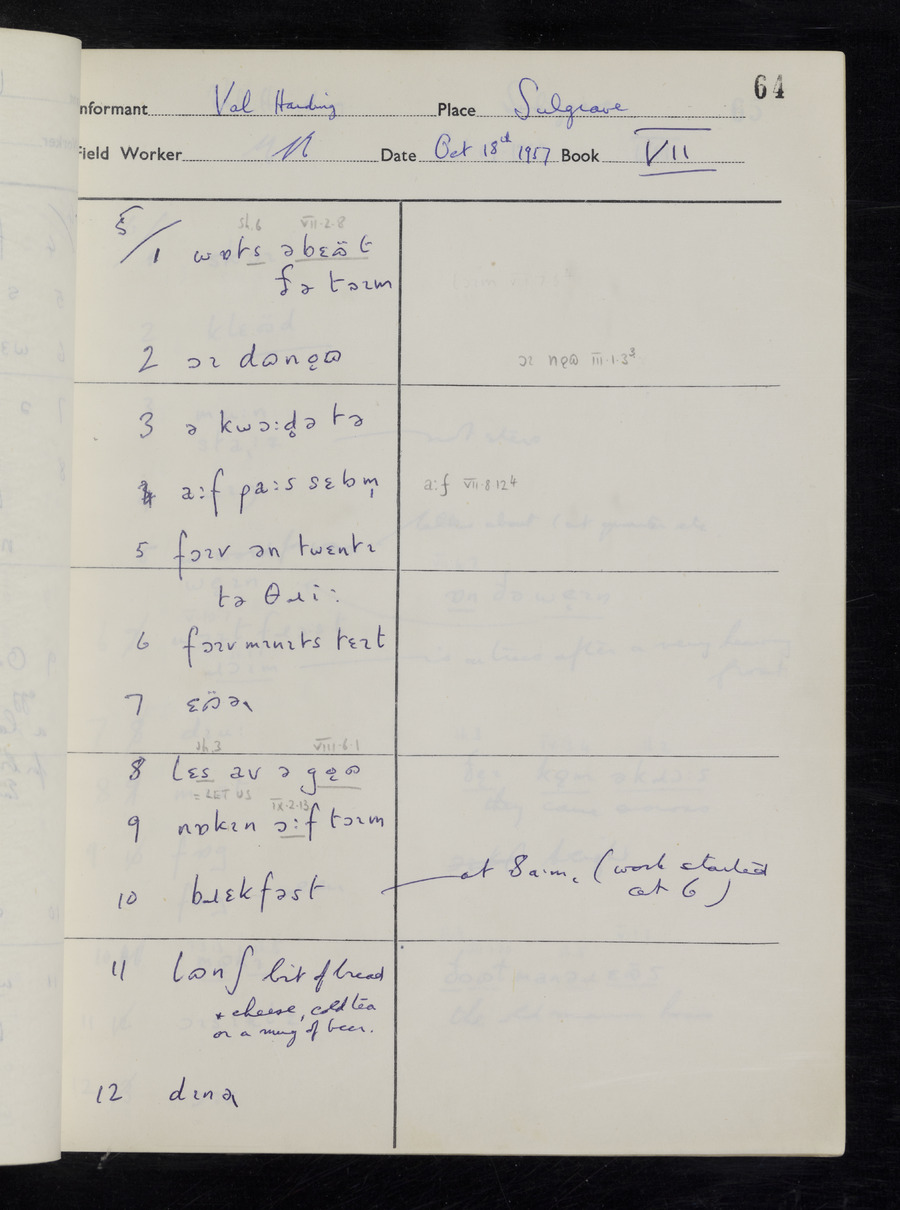 64
nformant Val Harding Place Sulgrave
ield Worker Date Oct 18th 1957 Book VII
sh.6 VII.2.8
5/1 wɒts əbɛʊ̈t
fə təɪm
2 ɔɪ dʊnȩʊ ɔɪ nȩʊ III.1.3³
3 ə kwɔ:d̥ə tə
4 a:f pa:s sɛbm̩ a:f VII.8.12⁴
5 fɔɪv ən twɛntɪ
tə θɹi:
6 fɔɪv mɪnɪts tɛɪt
7 ɛʊ̈əɻ
sh.3 VIII.6.1
8 lɛs av ə gȩʊ
= LET US IX.2.13
9 nɒkɪn ɔ:f təɪm
10 bɹɛkfəst at 8 a.m. (work started
at 6)
11 lʊnʃ bit of bread
+ cheese, cold tea
or a mug of beer.
12 dɪnəɻ